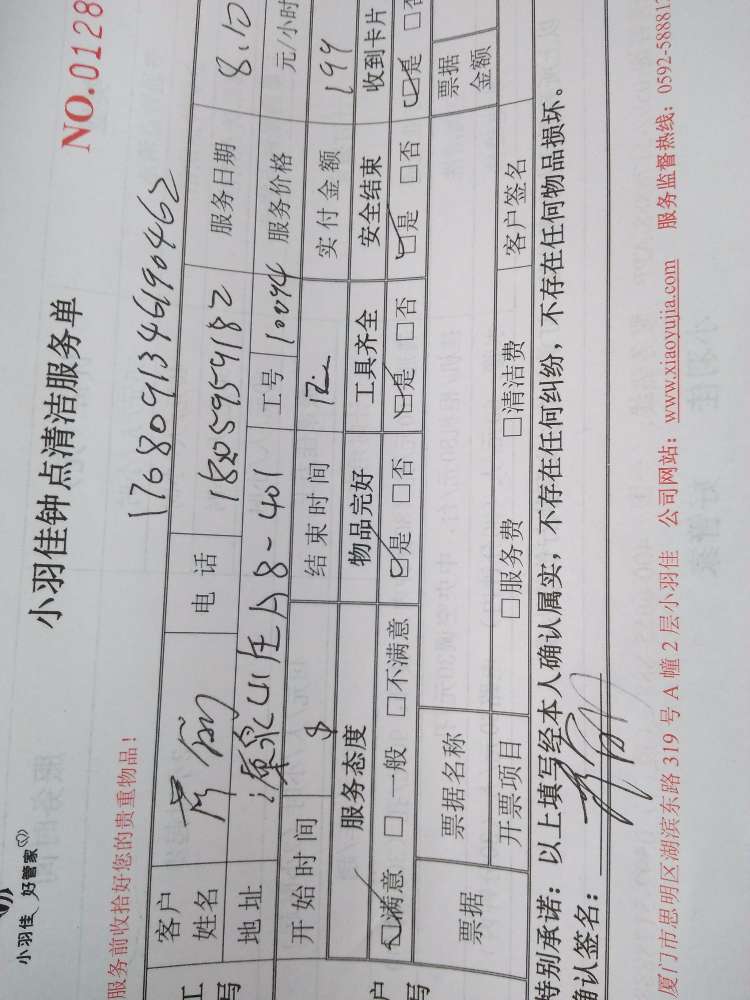 小羽佳 好管家
小羽佳钟点清洁服务单
NO.0128
服务前收拾好您的贵重物品！
1768091346190462
客户姓名 电话 18205959182 服务日期 8.10
地址 A8-401 工号 10094 服务价格 元/小时
开始时间 8 结束时间 12 实付金额 199
服务态度 物品完好 工具齐全 安全结束 收到卡片
☑满意 □一般 □不满意 ☑是 □否 ☑是 □否 ☑是 □否 ☑是 □否
票据 票据名称 票据金额
开票项目 □服务费 □清洁费 客户签名
特别承诺：以上填写经本人确认属实，不存在任何纠纷，不存在任何物品损坏。
确认签名：
厦门市思明区湖滨东路 319 号 A 幢 2 层小羽佳 公司网站：www.xiaoyujia.com 服务监督热线：0592-58881